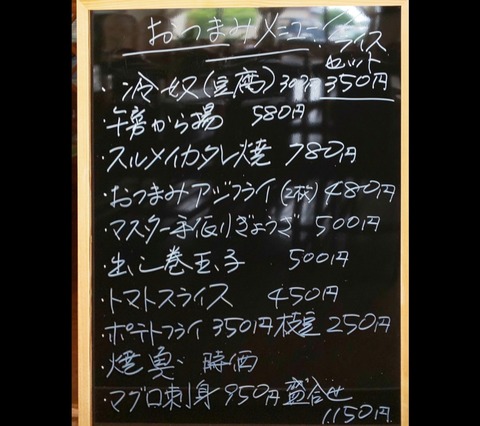 おつまみメニュー
ライス
セット
・冷奴(豆腐)300円 350円
・牛蒡から揚 580円
・スルメイカタレ焼 780円
・おつまみアジフライ(2枚)480円
・マスター手作りぎょうざ 500円
・出し巻玉子 500円
・トマトスライス 450円
・ポテトフライ 350円 枝豆 250円
・焼魚 時価
・マグロ刺身 950円 盛合せ
1,150円